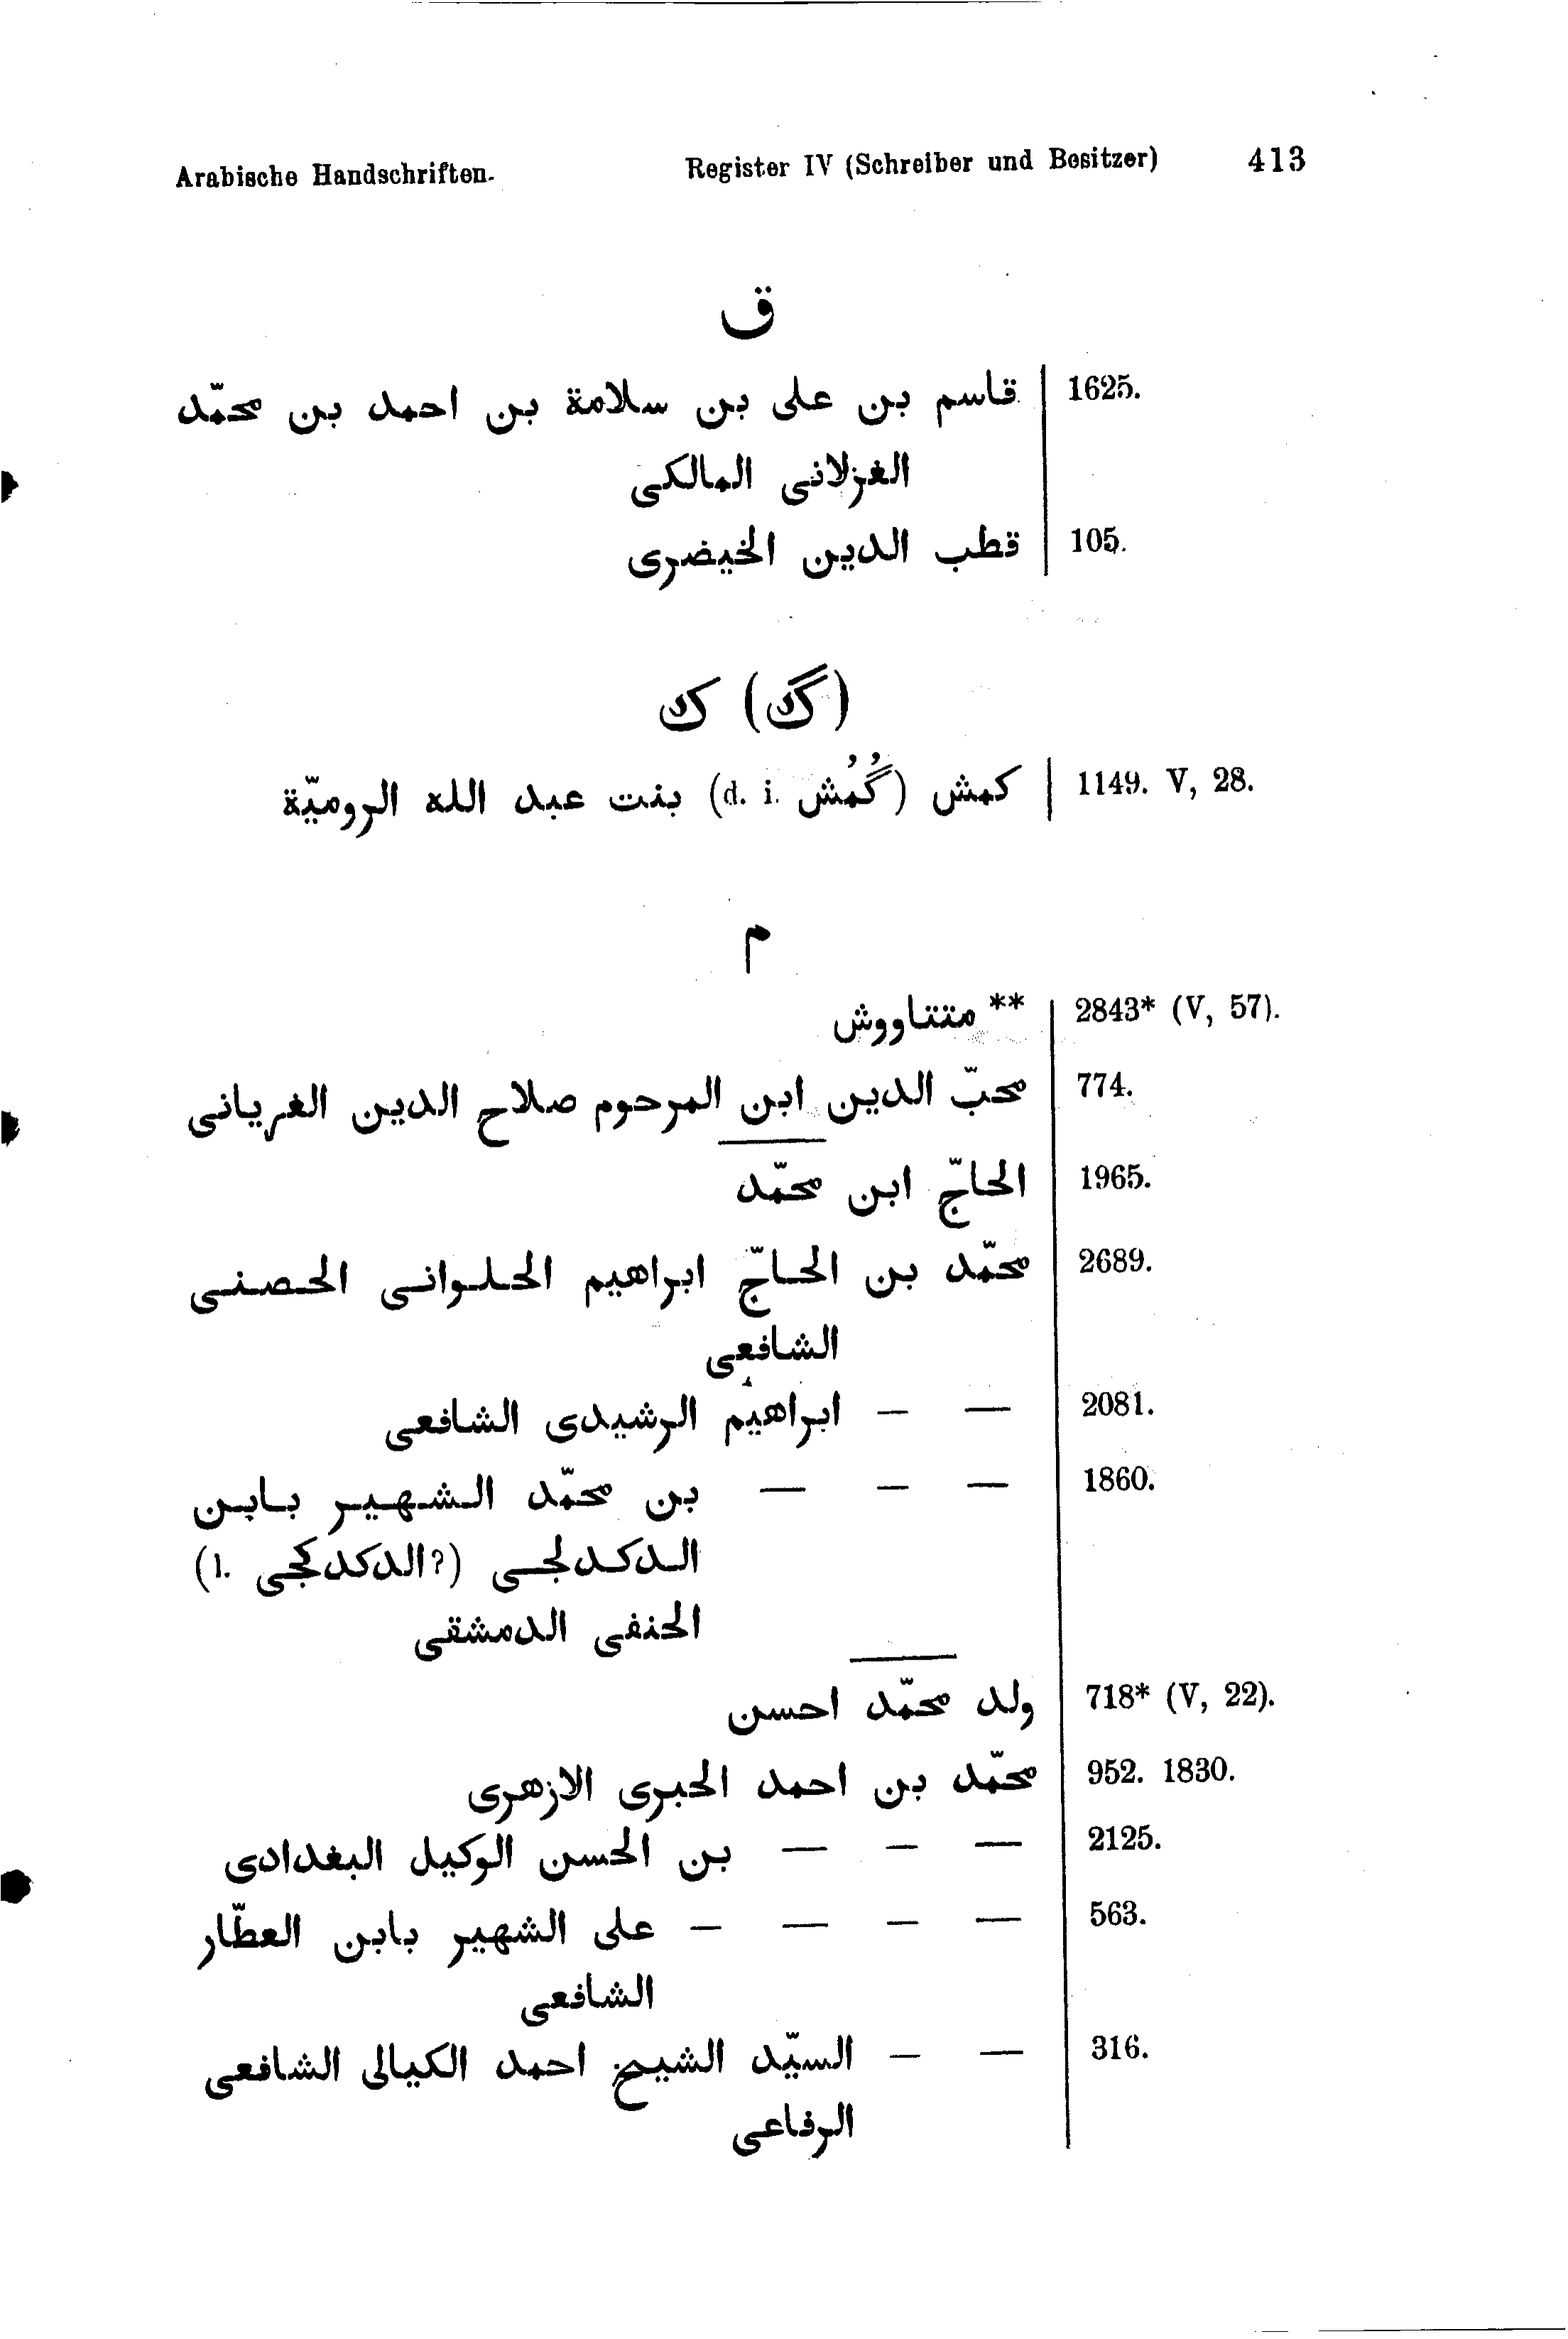 Arabische Handschriften. Register IV (Schreiber und Besitzer) 413
ق
قاسم بن على بن سلامة بن احمد بن محمّد 1625.
الغزلانى المالكى
قطب الدين الخيضرى 105.
ك (گ)
كمش (d. i. گُمُش) بنت عبد الله الروميّة 1149. V, 28.
م
** متتناووش 2843* (V, 57).
محبّ الدين ابن المرحوم صلاح الدين الغريانى 774.
الحاجّ ابن محمّد 1965.
محمّد بن الحاجّ ابراهيم الحلوانى الحصنى 2689.
الشافعى
— – ابراهيم الرشيدى الشافعى 2081.
— – — بن محمّد الشهير بابن 1860.
الدكدلجى (l. الدكدكجى?)
الحنفى الدمشقى
ولد محمّد احسن 718* (V, 22).
محمّد بن احمد الحبرى الازهرى 952. 1830.
— – — بن الحسن الوكيل البغدادى 2125.
— – — – على الشهير بابن العطّار 563.
الشافعى
— – السيّد الشيخ احمد الكيالى الشافعى 316.
الرفاعى